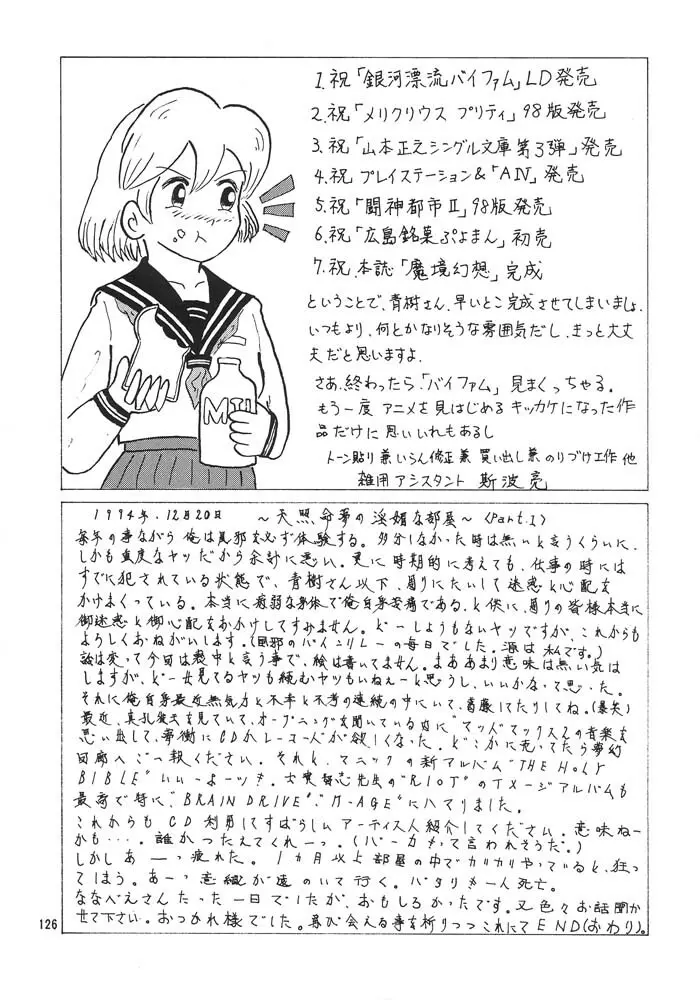 1.祝「銀河漂流バイファム」LD発売
2.祝「メリクリウス プリティ」98版発売
3.祝「山本正之シングル文庫第3弾」発売
4.祝 プレイステーション&「AIV」発売
5.祝「闘神都市II」98版発売
6.祝「広島銘菓ぷよまん」初売
7.祝.本誌「魔境幻想」完成
ということで、青樹さん、早いとこ完成させてしまいましょ。
いつもより、何とかなりそうな雰囲気だし、きっと大丈
夫だと思いますよ。
さあ、終わったら、「バイファム」見まくっちゃる。
もう一度 アニメを見はじめる キッカケになった作
品だけに 思いいれもあるし
トーン貼り兼いらん修正兼 買い出し兼のりづけ工作 他
雑用アシスタント 斯波亮
MIL
1994年.12月20日 〜天照命夢の淫媚な部屋〜〈Part.1〉
毎年の事ながら俺は風邪を必ず体験する。多分しなかった時は無いと言うくらいに、
しかも重度なヤツだから余計に悪い。更に時期的に考えても、仕事の時には
すでに犯されている状態で、青樹さん以下、周りにたいして迷惑と心配を
かけまくっている。本当に病弱な身体で俺自身苦痛である。と供に、周りの皆様本当に
御迷惑と御心配をおかけしてすみません。どーしようもないヤツですが、これからも
よろしくおねがいします。(風邪のバイニリレーの毎日でした。源は私です。)
話は変って今回は喪中と言う事で、絵は書いてません。まああまり意味は無い気は
しますが、どーせ見るヤツも読むヤツもいねぇーと思うし、いいかなって思った。
それに俺自身最近無気力と不幸と不考の連続の中にいて、葛藤してたりしてね。(爆笑)
最近、真孔雀王を見ていて、オープニングを聞いている内に"マッドマックス2の音楽を
思い出して、夢衝にCDかレコード人が欲しくなった。どこかに売ってたら夢幻
回廊へご一報ください。それと、マニックの新アルバム"THE HOLY
BIBLE"いいっよーッ!。士貴智志先生の"RIOT"のイメージアルバムも
最高で特に"BRAIN DRIVE"."M-AGE"にハマりました。
これからも CD 利用してすばらしいアーティス人紹介してください。意味ねー
かも…。誰かつたえてくれーっ。(バーカもって言われそうだ。)
しかし あーっ疲れた。1カ月以上部屋の中でカリカリやっていると、狂っ
てしまう。あーっ意識が遠のいて行く。バタリも一人死亡。
ななべえさんたった一日でしたが、おもしろかったです。又色々お話聞か
せて下さい。おつかれ様でした。再び会える事を祈りつつこれにてEND(おわり)。
126